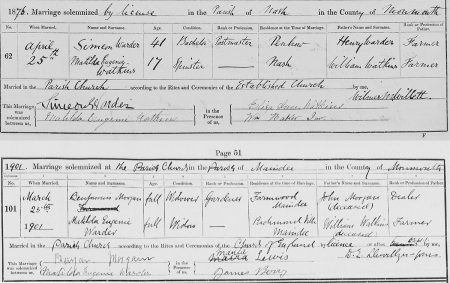 1876. Marriage solemnized by licence in the Parish of Nash in the County of Monmouth
When Married. Name and Surname. Age. Condition. Rank or Profession. Residence at the Time of Marriage. Father's Name and Surname. Rank or Profession of Father.
62 April 25th Simeon Warder 41 Bachelor Postmaster Henry Warder Farmer
Matilda Eugenie Watkins 17 Spinster Nash William Watkins Farmer
Married in the Parish Church according to the Rites and Ceremonies of the Established Church by me,
This Marriage was solemnized between us, Simeon Warder
Matilda Eugenie Watkins
in the Presence of us,
Page 51
1901. Marriage solemnized at the Parish Church in the Parish of Maindee in the County of Monmouth
No. When Married. Name and Surname. Age. Condition. Rank or Profession. Residence at the time of Marriage. Father's Name and Surname. Rank or Profession of Father.
101 March 25th 1901 Benjamin Morgan full Widower Gardener Maindee John Morgan (deceased) Dealer
Matilda Eugenie Warder full Widow Maindee William Watkins deceased Farmer
Married in the Parish Church according to the Rites and Ceremonies of the Church of England by licence or after by me,
This Marriage was solemnized between us, Morgan
Matilda Eugenie Warder
in the Presence of us, Lewis
James Berry